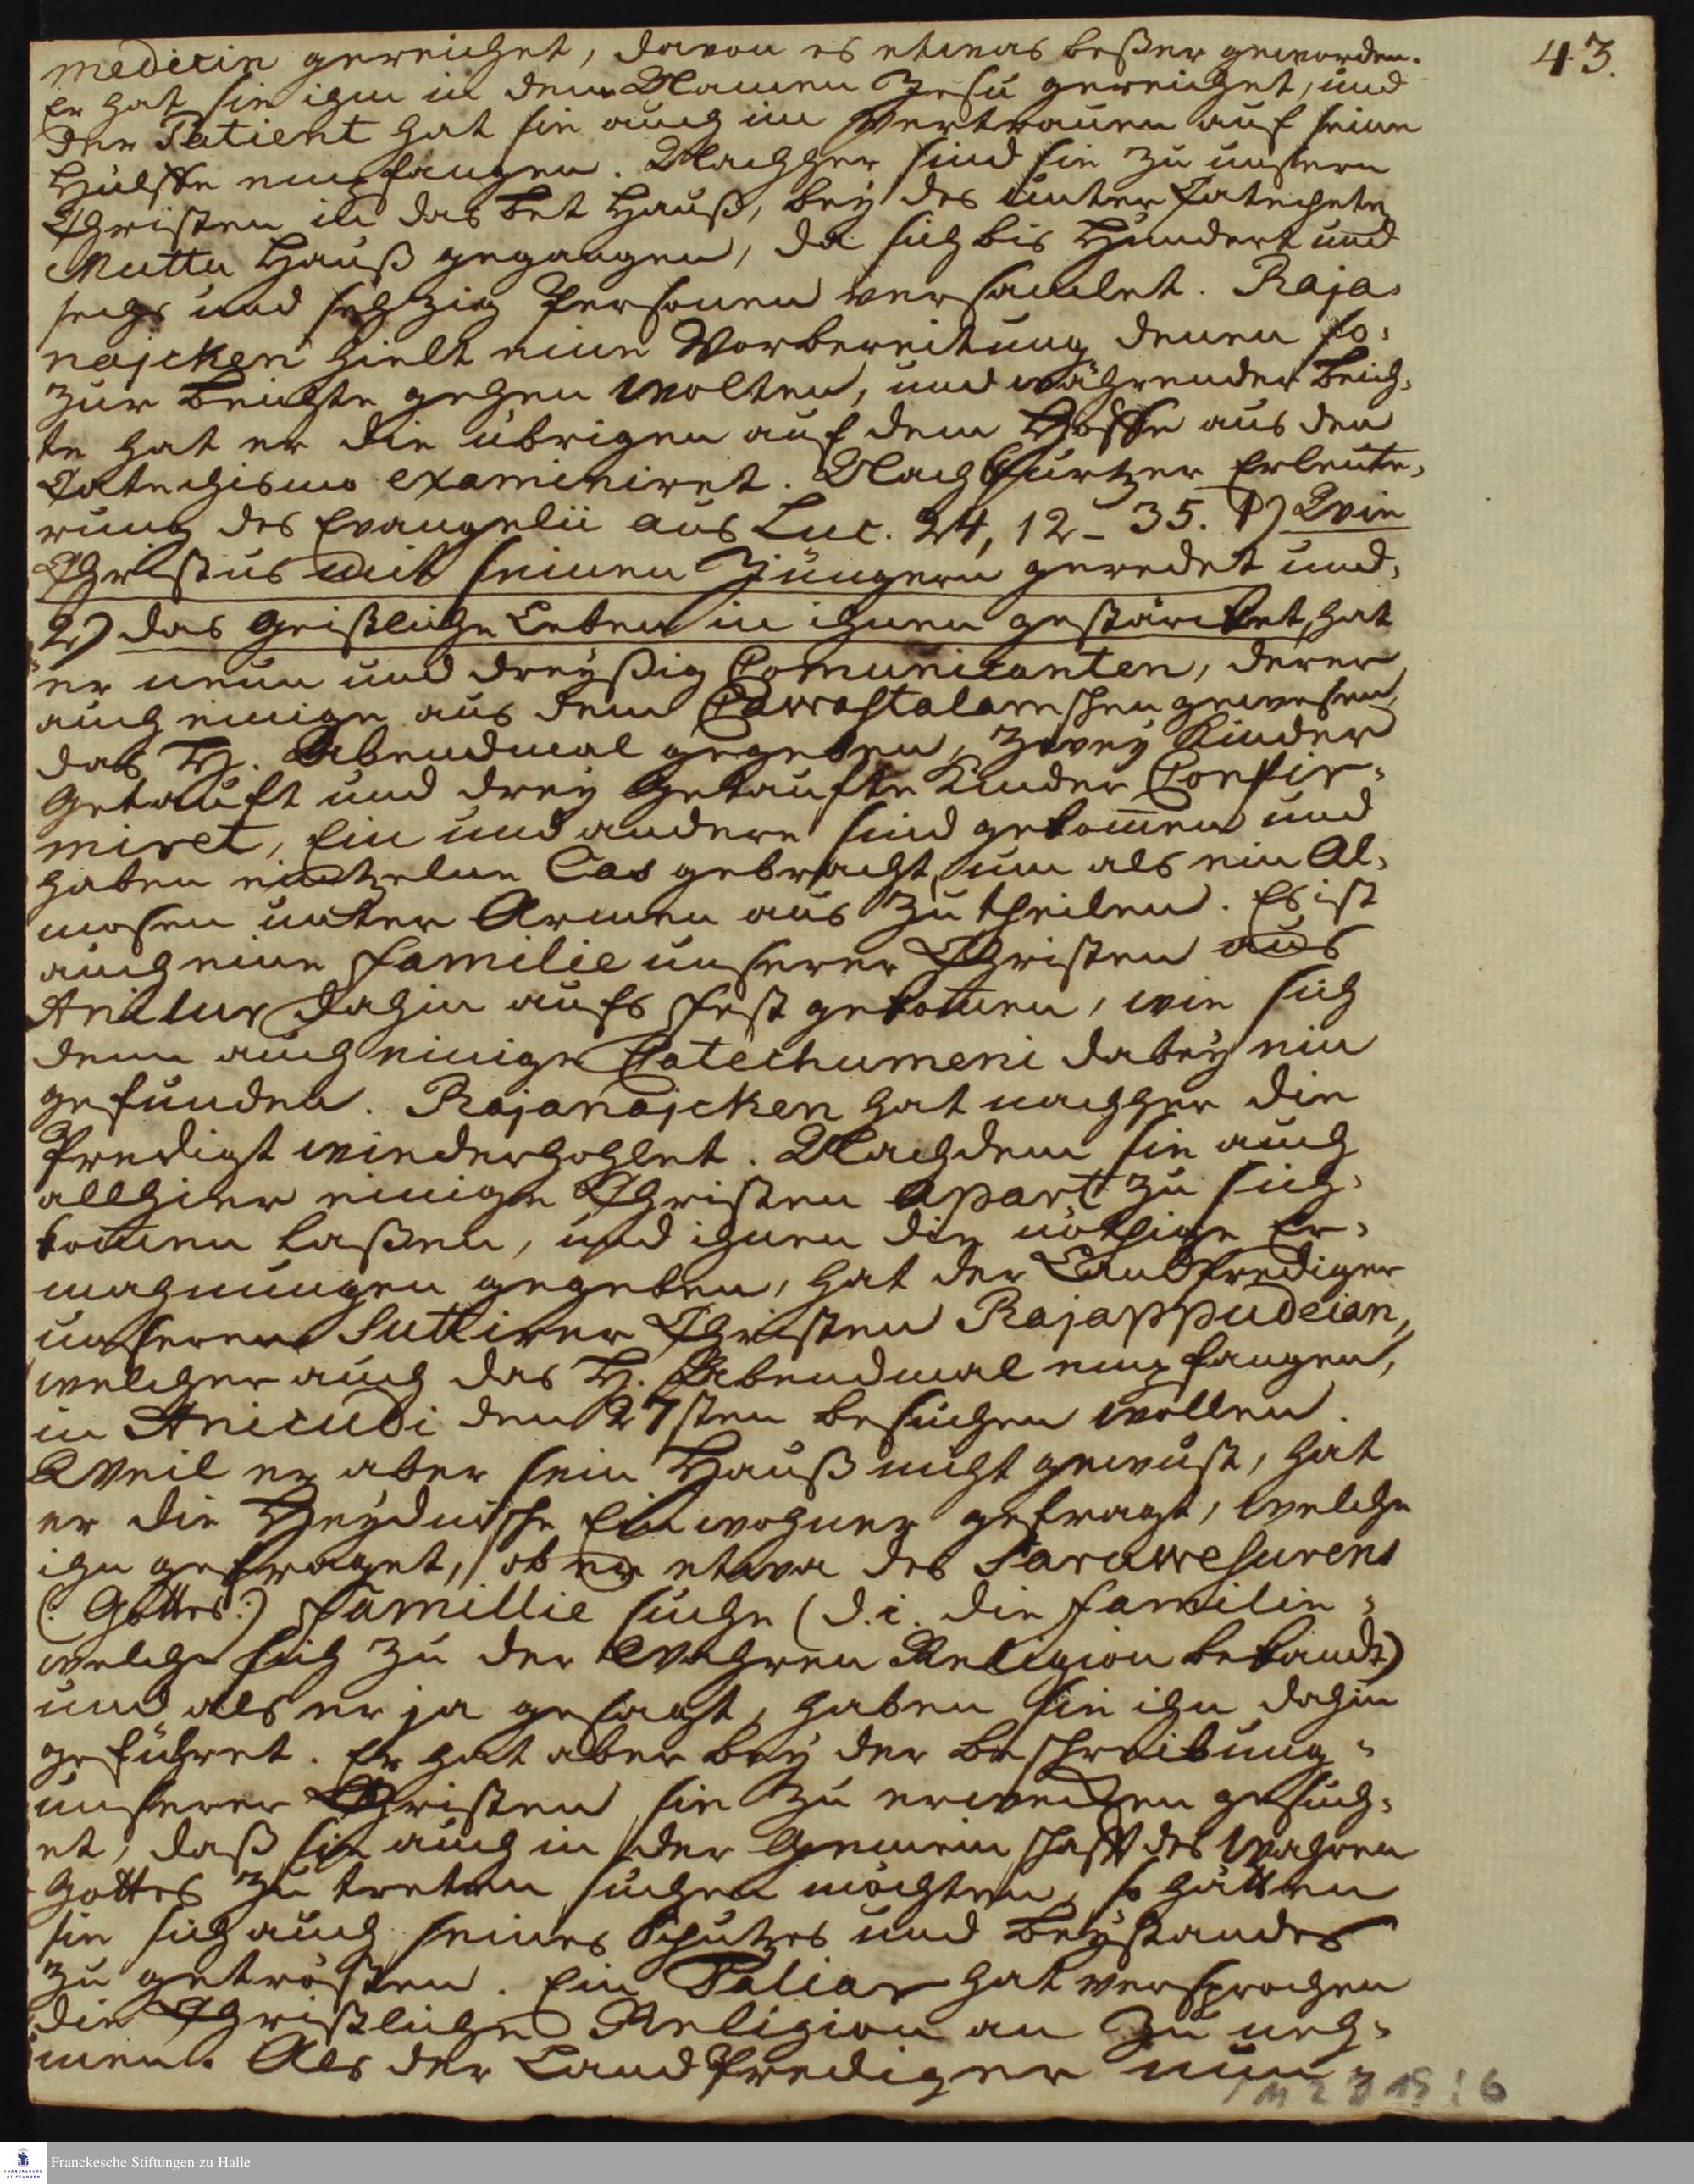 43.
medicin gereichet, davon es etwas beßer geworden.
Er hat sie ihm in dem Namen Jesu gereichet, und
der Patient hat sie auch im Vertrauen auf seine
Hülffe empfangen. Nachher sind sie zu unsern
Christen in das Bet Hauß, bey des Unter Catecheten
Muttu Hauß gegangen, da sich bis Hundert und
sechs und sechzig Personen versamlet. Raja-
najcken hielt eine Vorbereitung denen so-
zur Beichte gehen wolten, und währender Beich-
te hat er die übrigen auf dem Hoffe aus den
Catechismo examiniret. Nach kurtzer Erleute-
rung des Evangelii aus Luc. 24, 12-35. 1) Wie
Christus mit seinen Jüngern geredet und,
2) das Geistliche Leben in ihnen gestärcket, hat
er neun und dreyßig Comunicanten, derer
auch einige aus dem Pawastalamschen gewesen,
das H. Abendmal gegeben, zwey Kinder
Getauft und drey Getaufte Kinder Confir-
miret, Ein und andere sind gekom̅en und
haben eintzelne Cas gebracht, um als ein Al-
mosen unter Armen aus zu theilen. Es ist
auch eine Familie unserer Christen aus
Anilur dahin aufs Fest gekom̅en, wie sich
denn auch einige Catechumeni dabey ein
gefunden. Rajanajcken hat nachher die
Predigt wiederhohlet. Nachdem sie auch
allhier einige Christen apart zu sich-
kom̅en laßen, und ihnen die nöthige Er-
mahnungen gegeben, hat der Landprediger
unseren Suttirer Christen Rajappudeian,
welcher auch das H. Abendmal empfangen,
in Anicudi den 27sten besuchen wollen.
Weil er aber sein Hauß nicht gewust, hat
er die Heydnische Einwohner gefragt, welche
ihn gefraget, ob er etwa des Sarawesurens
(: Gottes :) Famillie suche (d. i. die Familie-
welche sich zu der Wahren Religion bekandt)
und als er ja gesagt, haben sie ihn dahin
geführet. Er hat aber bey der Beschreibung-
unserer Christen sie zu erwecken gesuch-
et, daß sie auch in der Gemeinschafft des Wahren
Gottes zu treten suchen möchten, so hätten
sie sich auch seines Schutzes und Beystandes
zu getrösten. Ein Paliar hat versprochen
die Christliche Religion an zu neh-
men. Als der Landprediger nun
Franckesche Stiftungen zu Halle